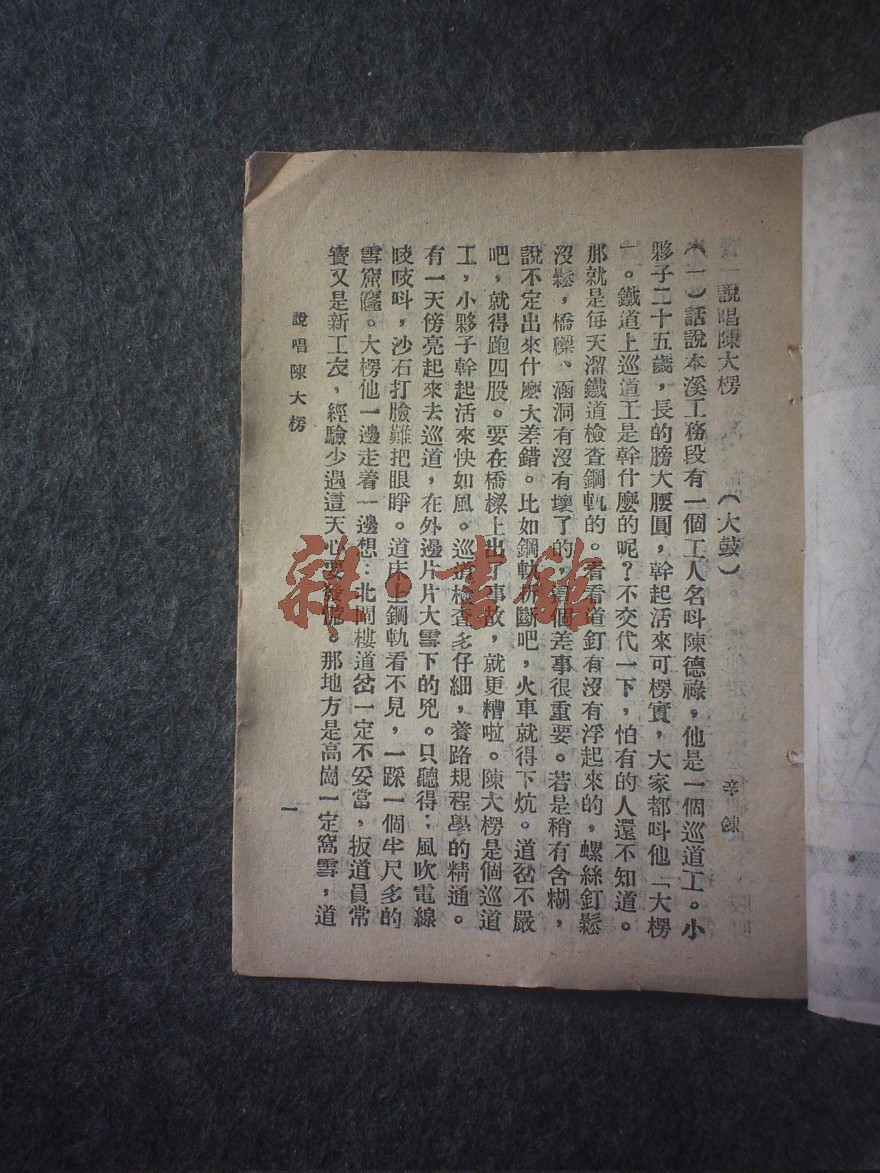 說唱陳大楞 (大鼓) 辛 
(一)話說本溪工務段有一個工人名呌陳德祿,他是一個巡道工。小
夥子二十五歲,長的膀大腰圓,幹起活來可楞實,大家都呌他「大楞
」。鐵道上巡道工是幹什麼的呢?不交代一下,怕有的人還不知道。
那就是每天溜鐵道檢查鋼軌的。看看道釘有沒有浮起來的,螺絲釘鬆
沒鬆,橋樑、涵洞有沒有壞了的,這個差事很重要。若是稍有含糊,
說不定出來什麼大差錯。比如鋼軌折斷吧,火車就得下炕。道岔不嚴
吧,就得跑四股。要在橋樑上出了事故,就更糟啦。陳大楞是個巡道
工,小夥子幹起活來快如風。巡道檢查多仔細,養路規程學的精通。
有一天傍亮起來去巡道,在外邊片片大雪下的兇。只聽得:風吹電線
吱吱呌,沙石打臉難把眼睜。道床上鋼軌看不見,一踩一個半尺多的
雪窟窿。大楞他一邊走着一邊想:北閘樓道岔一定不妥當,扳道員常
寶又是新工友,經驗少遇這天心要發慌。那地方是高崗一定窩雪,道
說唱陳大楞
一
雜·書館